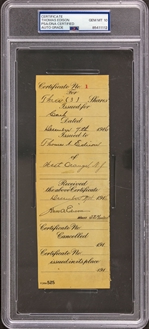 CERTIFICATE
THOMAS EDISON
PSA/DNA CERTIFIED
AUTO GRADE
GEM MT 10
PSA
Certificate No. 1
For
Three (3) Shares
Issued for
Cash
Dated
December 7th 190
Issued to
Thomas A. Edison
of
West Orange N.J.
Received
the above Certificate
December 190
Certificate No
Cancelled
190
Certificate No
issued in its place
190